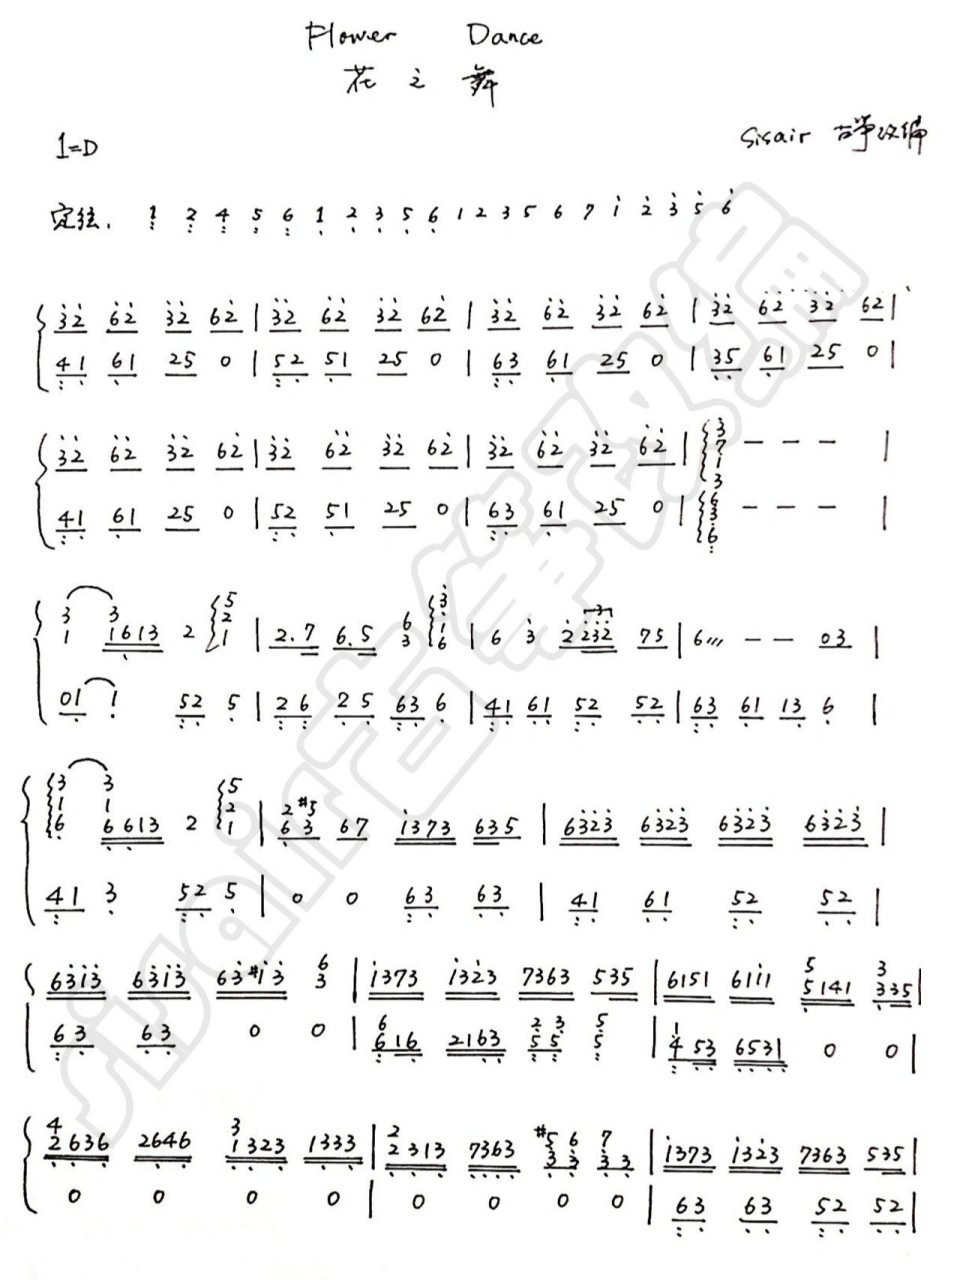 Flower Dance
花之舞
1=D
Sisair 古筝改编
定弦. 1 2 4 5 6 1 2 3 5 6 1 2 3 5 6 7 1 2 3 5 6
32 62 32 62 | 32 62 32 62 | 32 62 32 62 | 32 62 32 62 |
41 61 25 0 | 52 51 25 0 | 63 61 25 0 | 35 61 25 0 |
32 62 32 62 | 32 62 32 62 | 32 62 32 62 | 3 7 1 3 — — — |
41 61 25 0 | 52 51 25 0 | 63 61 25 0 | 6 3 6 — — — |
3 1 3 1613 2 5 2 1 | 2.7 6.5 6 3 3 1 6 | 6 3 2 3 232 75 | 6 — — 03 |
01 1 52 5 | 26 25 63 6 | 41 61 52 52 | 63 61 13 6 |
3 1 6 3 1 6613 2 5 2 1 | 2 #5 63 67 1373 635 | 6323 6323 6323 6323 |
41 3 52 5 | 0 0 63 63 | 41 61 52 52 |
6313 6313 63#13 6 3 | 1373 1323 7363 535 | 6151 6111 5 5141 3 335 |
63 63 0 0 | 6 616 2163 2 3 55 5 5 | 1 4 53 6531 0 0 |
4 2636 2646 3 1323 1333 | 2 2313 7363 #5 6 33 7 33 | 1373 1323 7363 535 |
0 0 0 0 | 0 0 0 0 | 63 63 52 52 |
sisair古筝改编